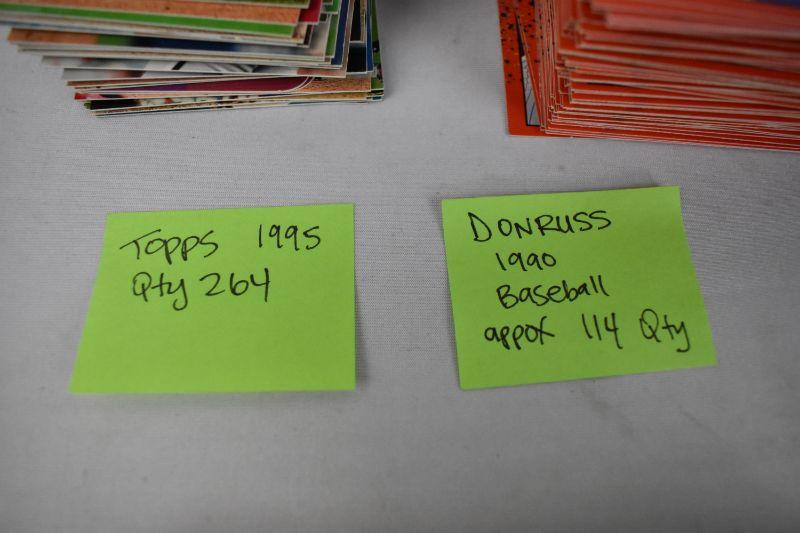 Topps 1995
Qty 264
DONRUSS
1990
Baseball
appox 114 Qty